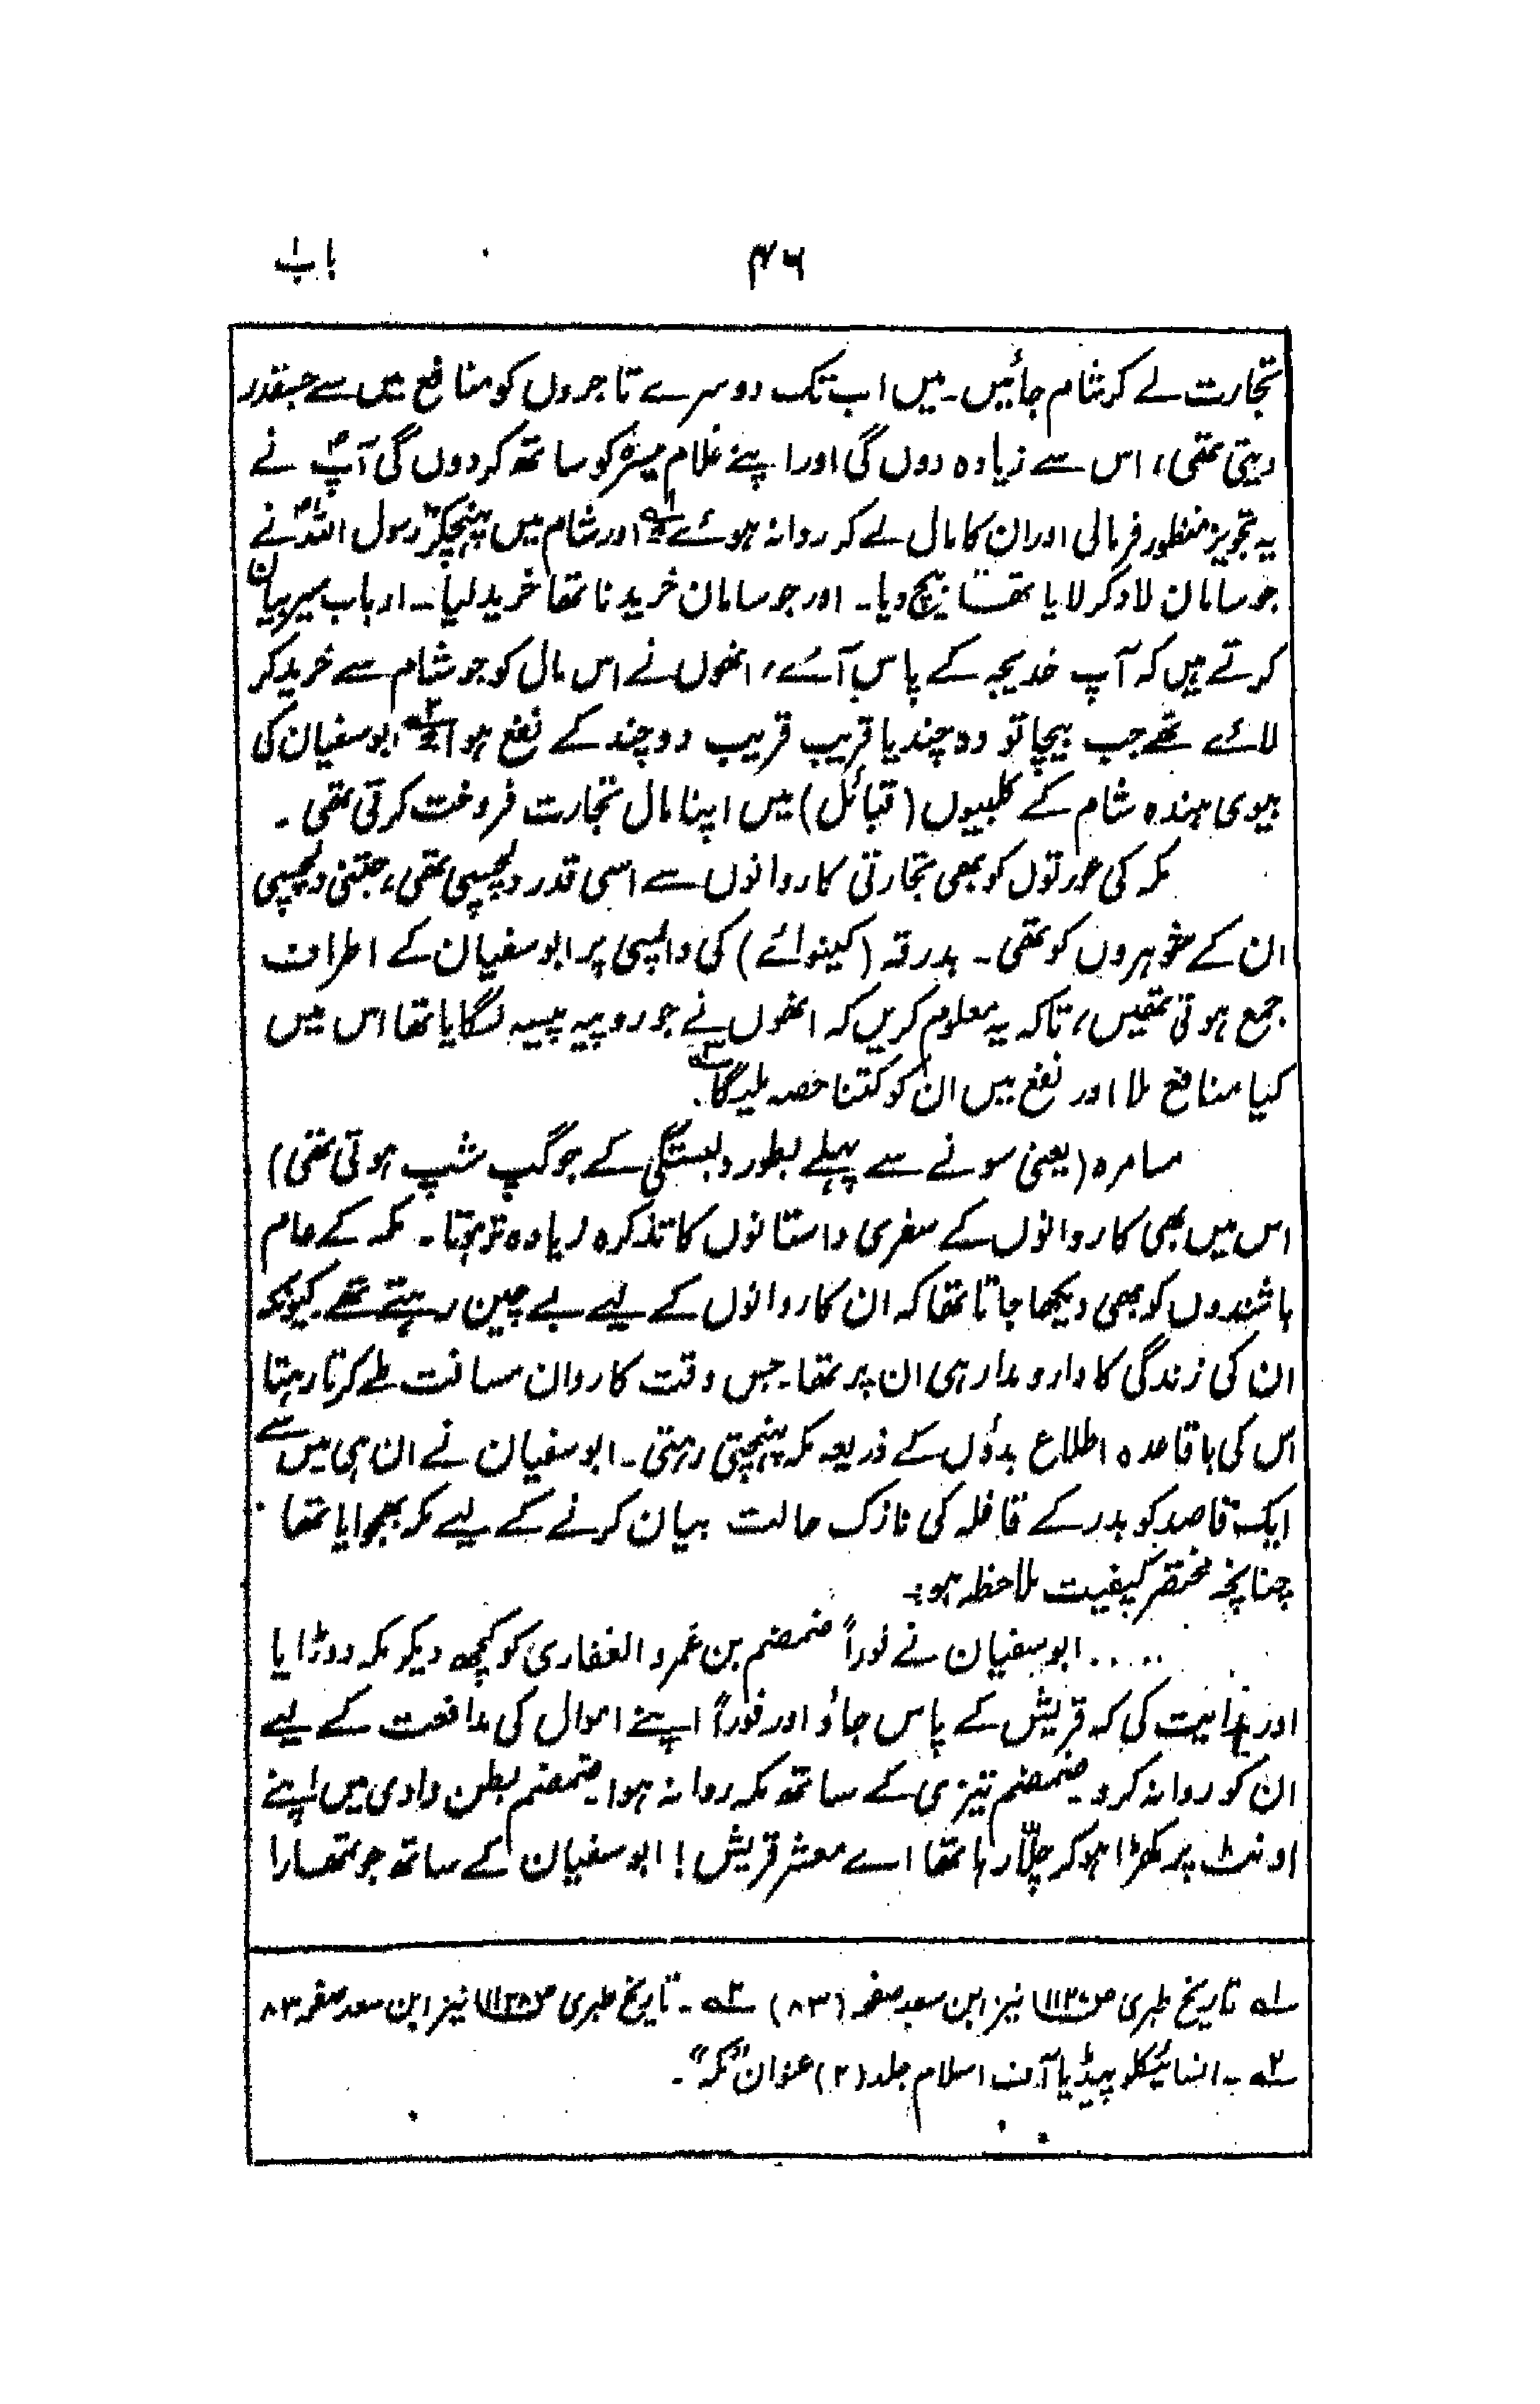 باب ۱
۴۶
تجارت لے کر شام جائیں۔ میں اب تک دوسرے تاجروں کو منافع میں سے جسقدر
دیتی تھی، اس سے زیادہ دوں گی اور اپنے غلام میسرہ کو ساتھ کر دوں گی آپؐ نے
یہ تجویز منظور فرمالی اور ان کا مال لے کر روانہ ہوئے ۱؎ اور شام میں پہنچکر رسول اللہؐ نے
جو سامان لاد کر لایا تھا بیچ دیا۔ اور جو سامان خریدنا تھا خرید لیا۔ ارباب سیر بیان
کرتے ہیں کہ آپ خدیجہ کے پاس آئے، انھوں نے اس مال کو جو شام سے خرید کر
لائے تھے جب بیچا تو دوچند یا قریب قریب دوچند کے نفع ہوا ۲؎ ابوسفیان کی
بیوی ہندہ شام کے کلبیوں (قبائل) میں اپنا مال تجارت فروخت کرتی تھی۔
مکہ کی عورتوں کو بھی تجارتی کاروانوں سے اسی قدر دلچسپی تھی، جتنی دلچسپی
ان کے شوہروں کو تھی۔ بدرقہ (کینوائے) کی واپسی پر ابوسفیان کے اطراف
جمع ہوتی تھیں، تاکہ یہ معلوم کریں کہ انھوں نے جو روپیہ پیسہ لگایا تھا اس میں
کیا منافع ملا اور نفع میں ان کو کتنا حصہ ملیگا ۳؎.
مسامرہ (یعنی سونے سے پہلے بطور دلبستگی کے جو گپ شپ ہوتی تھی)
اس میں بھی کاروانوں کے سفری داستانوں کا تذکرہ زیادہ تر ہوتا۔ مکہ کے عام
باشندوں کو بھی دیکھا جاتا تھا کہ ان کاروانوں کے لیے بے چین رہتے تھے۔ کیونکہ
ان کی زندگی کا دار و مدار ہی ان پر تھا۔ جس وقت کاروان مسافت طے کرتا رہتا
اس کی باقاعدہ اطلاع بدوؤں کے ذریعہ مکہ پہنچتی رہتی۔ ابوسفیان نے ان ہی میں سے
ایک قاصد کو بدر کے قافلہ کی نازک حالت بیان کرنے کے لیے مکہ بھجوایا تھا
چنانچہ مختصر کیفیت ملاحظہ ہو:۔
..... ابوسفیان نے فوراً ضمضم بن عمرو الغفاری کو کچھ دیکر مکہ دوڑایا
اور ہدایت کی کہ قریش کے پاس جاؤ اور فوراً اپنے اموال کی مدافعت کے لیے
ان کو روانہ کرو۔ ضمضم تیزی کے ساتھ مکہ روانہ ہوا۔ ضمضم بطن وادی میں اپنے
اونٹ پر کھڑا ہو کر چلّا رہا تھا اے معشر قریش! ابوسفیان کے ساتھ جو تمھارا
۱؎ تاریخ طبری ص ۱۱۲۸ نیز ابن سعد صفحہ (۸۳) ۲؎۔ تاریخ طبری ص ۱۱۲۸ نیز ابن سعد صفحہ ۸۳
۳؎۔ انسائیکلو پیڈیا آف اسلام جلد (۳) عنوان "مکہ"۔